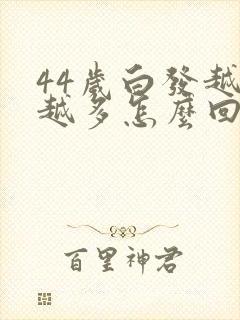 44歲白發越
越多怎麼回
百里神君